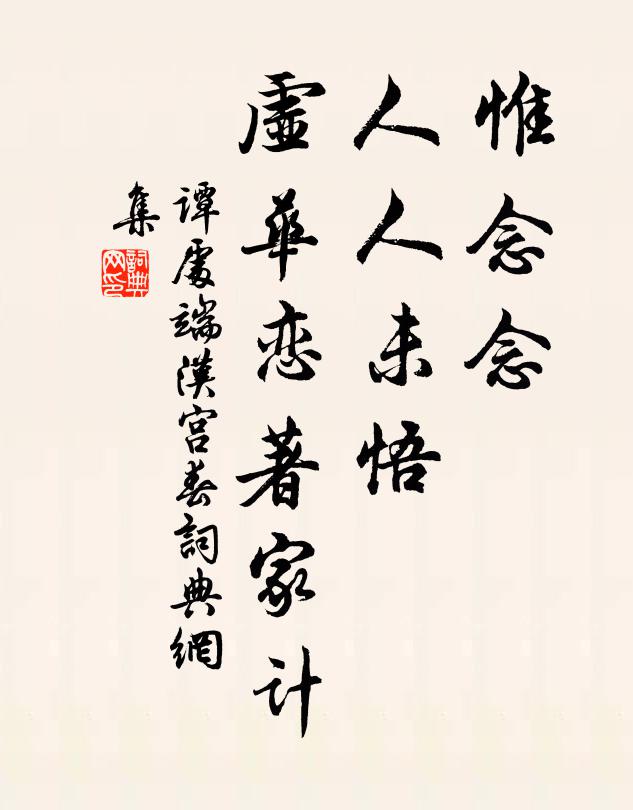 惟念念
人人未悟
虚華恋著家计
谭處端漢宫春詞典網
集
詞典网印